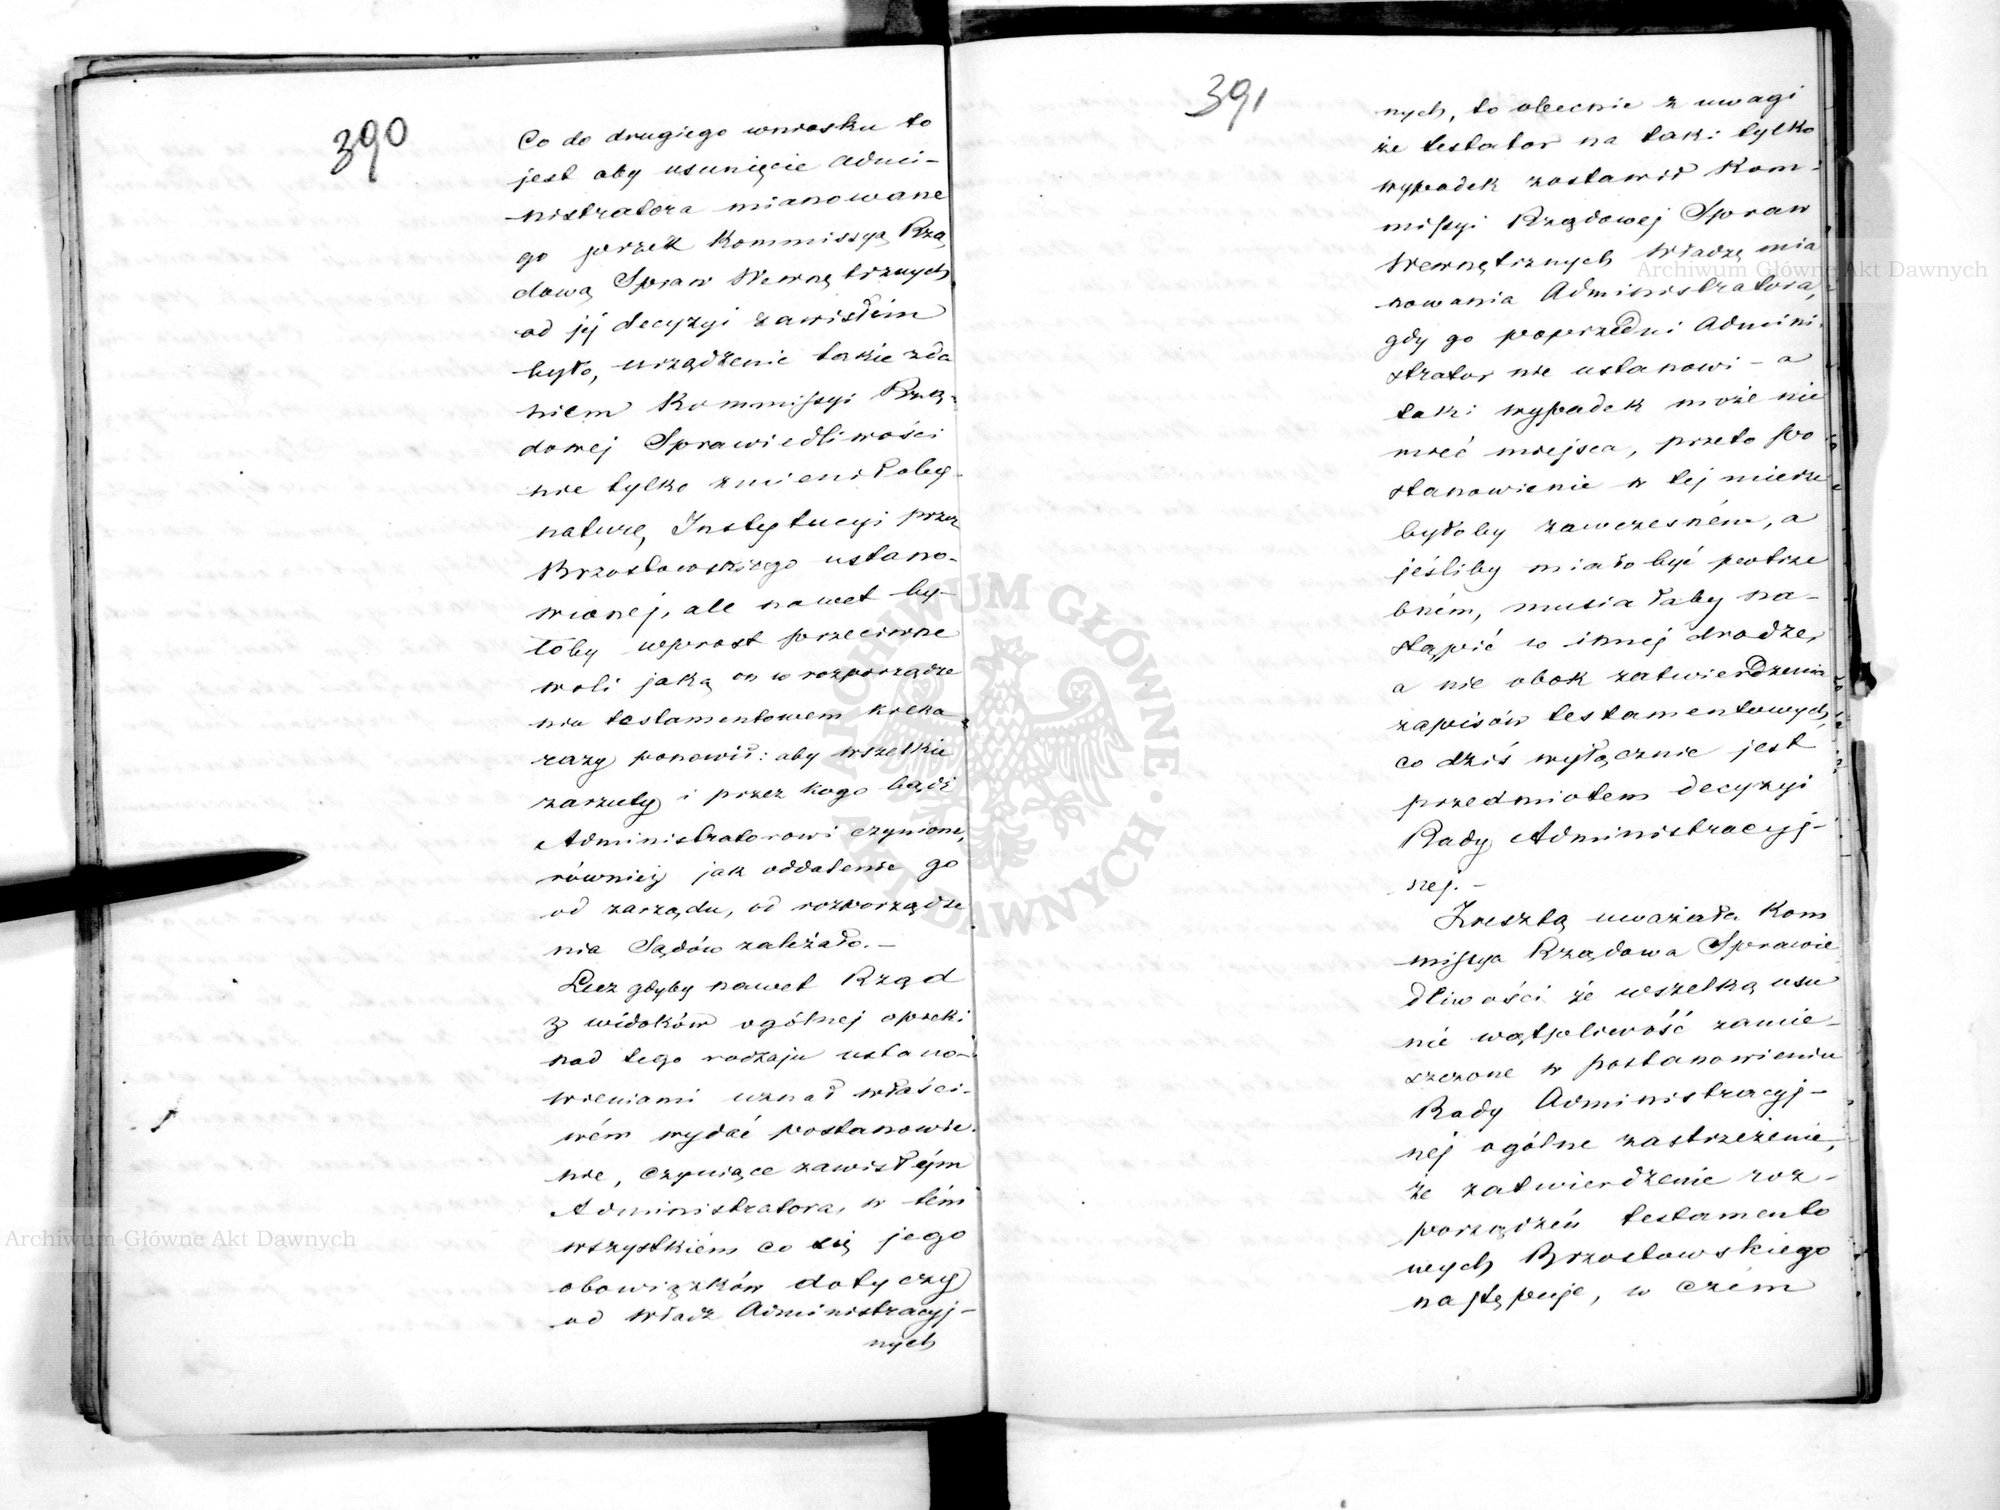 390
Co do drugiego wniosku to
jest aby usunięcie admi-
nistratora mianowane
go przez Kommissyą Rzą
dową Spraw Wewnętrznych
od jéj decyzyi zawisłém
było, urządzenie takie zda
niem Kommissyi Rzą-
dowej Sprawiedliwości
nie tylko zmieniłoby
naturę Instytucyi przez
Brzostowskiego ustano-
wionej, ale nawet by-
łoby wprost przeciwne
woli jaką on w rozporządze
niu testamentowem kilka
razy ponowił: aby wszelkie
zarzuty i przez kogo bądź
Administratorowi czynione,
również jak oddalenie go
od zarządu, od rozporządze
nia Sądów zależało.-
Lecz gdyby nawet Rząd
z widoków ogólnej opieki
nad tego rodzaju ustano-
wieniami uznał właści-
wém wydać postanowie-
nie, czyniące zawisłym
Administratora, w tém
wszystkiém co się jego
obowiązków dotyczy
od władz Administracyj-
nych
391
nych, to obecnie z uwagi
że testator na taki tylko
wypadek zostawił Kom-
missyi Rządowej Spraw
Wewnętrznych władzę mia
nowania Administratora,
gdy go poprzedni Admini-
strator nie ustanowi - a
taki wypadek może nie
mieć miejsca, przeto po
stanowienie w tej mierze
byłoby zawczesném, a
jeśliby miało być potrze
bném, musiałaby na-
stąpić w innej drodze,
a nie obok zatwierdzenia
zapisów testamentowych,
co dziś wyłącznie jest
przedmiotem decyzyi
Rady Administracyj-
nej.-
Zresztą uważała Kom
missya Rządowa Sprawie
dliwości że wszelką usu
nie wątpliwość zamie-
szczone w postanowieniu
Rady Administracyj-
néj ogólne zastrzeżenie,
że zatwierdzenie roz-
porządzeń testamento
wych Brzostowskiego
następuje, w czém
Archiwum Główne Akt Dawnych
Archiwum Główne Akt Dawnych
ARCHIWUM GŁÓWNE AKT DAWNYCH